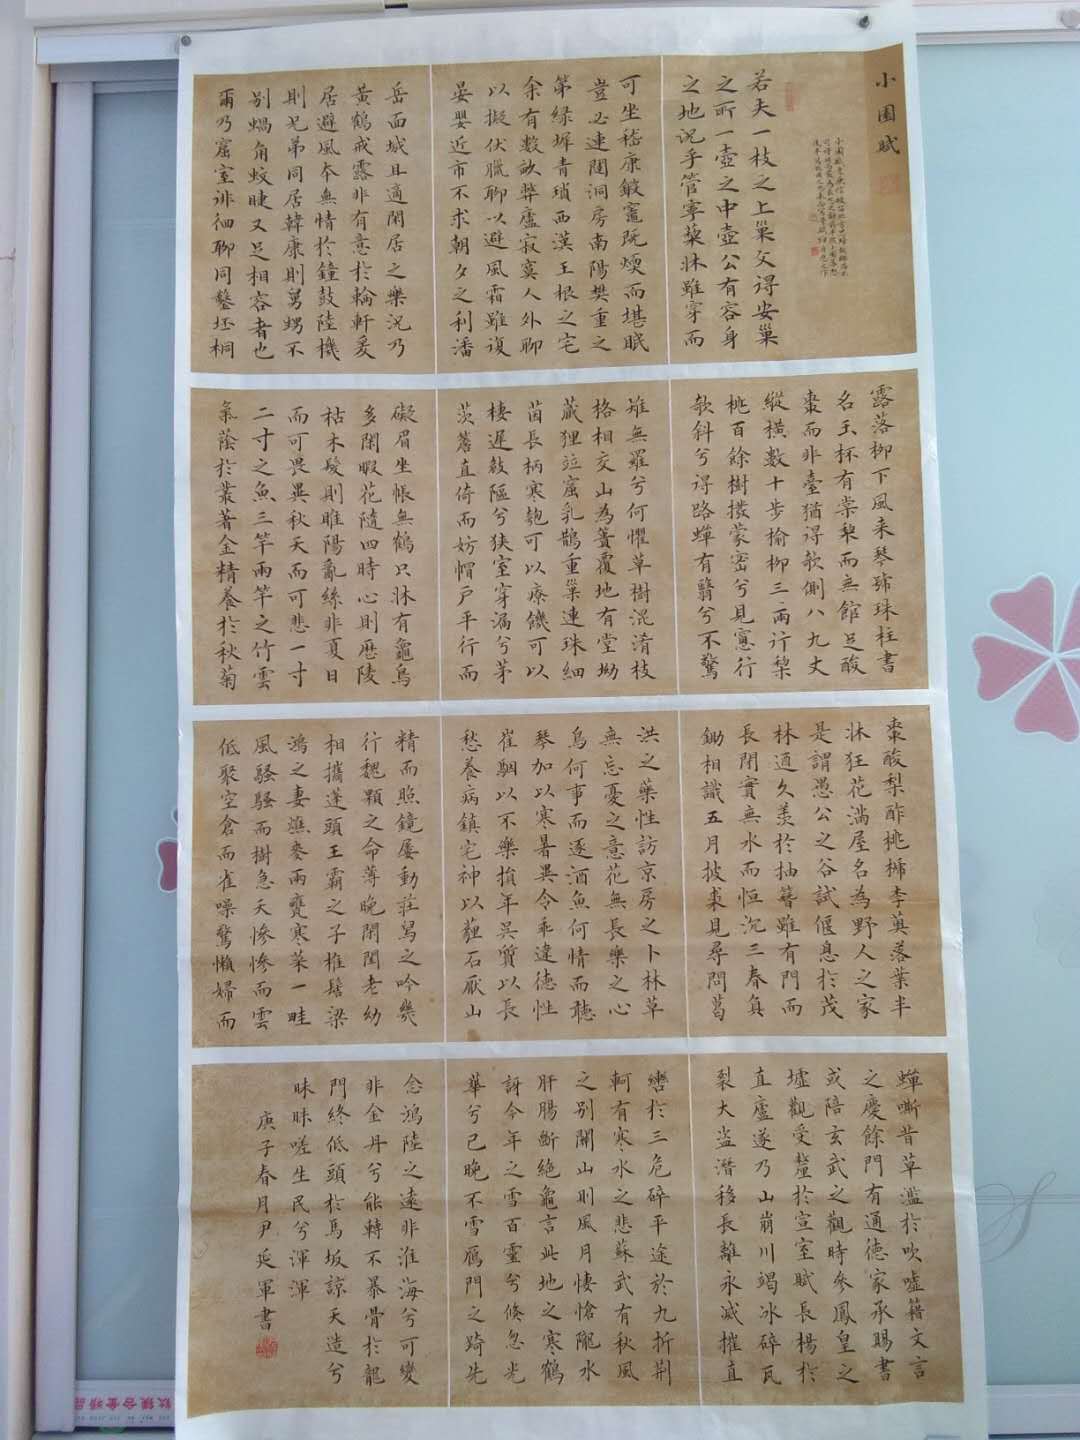 小園賦
若夫一枝之上巢父得安巢
之所一壺之中壺公有容身
之地況乎管寧藜牀雖穿而
可坐嵇康鍛竈既煗而堪眠
豈必連闥洞房南陽樊重之
第緑墀青瑣西漢王根之宅
余有數畝弊廬寂寞人外聊
以擬伏臘聊以避風霜雖復
晏嬰近市不求朝夕之利潘
岳面城且適閑居之樂況乃
黃鶴戒露非有意於輪軒爰
居避風本無情於鐘鼓陸機
則兄弟同居韓康則舅甥不
别蝸角蚊睫又足相容者也
爾乃窟室徘徊聊同鑿坯桐
露落柳下風来琴號珠柱書
名玉杯有棠梨而無館足酸
棗而非臺猶得欹側八九丈
縱橫數十步榆柳三兩行梨
桃百餘樹撥蒙密兮見窓行
欹斜兮得路蟬有翳兮不驚
雉無羅兮何懼草樹混淆枝
格相交山為簣覆地有堂坳
藏狸竝窟乳鵲重巢連珠細
茵長柄寒匏可以療饑可以
棲遲㩻䧢兮狹室穿漏兮茅
茨簷直倚而妨帽户平行而
礙眉坐帳無鶴只牀有龜鳥
多閑暇花隨四時心則歷陵
枯木髮則睢陽亂絲非夏日
而可畏異秋天而可悲一寸
二寸之魚三竿兩竿之竹雲
氣蔭於叢蓍金精養於秋菊
棗酸梨酢桃榹李薁落葉半
牀狂花滿屋名為野人之家
是謂愚公之谷試偃息於茂
林迺久羡於抽簪雖有門而
長閉實無水而恒沉三春負
鋤相識五月披裘見尋問葛
洪之藥性訪京房之卜林草
無忘憂之意花無長樂之心
鳥何事而逐酒魚何情而聽
琴加以寒暑異令乖違德性
崔駰以不樂損年吳質以長
愁養病鎮宅神以薶石厭山
精而照鏡屢動莊舄之吟幾
行魏顆之命薄晚閑閨老幼
相攜蓬頭王霸之子椎髻梁
鴻之妻燋麥兩甕寒菜一畦
風騷騷而樹急天慘慘而雲
低聚空倉而雀噪驚懶婦而
蟬嘶昔草濫於吹嘘籍文言
之慶餘門有通德家承賜書
或陪玄武之觀時參鳳皇之
墟觀受釐於宣室賦長楊於
直廬遂乃山崩川竭冰碎瓦
裂大盜潛移長離永滅摧直
轡於三危碎平途於九折荆
軻有寒水之悲蘇武有秋風
之别關山則風月悽愴隴水
則肝腸斷絶龜言此地之寒鶴
訝今年之雪百靈兮倏忽光
華兮已晚不雪鴈門之踦先
念鴻陸之遠非淮海兮可變
非金丹兮能轉不暴骨於龍
門終低頭於馬坂諒天造兮
昧昧嗟生民兮渾渾
庚子春月尹延軍書